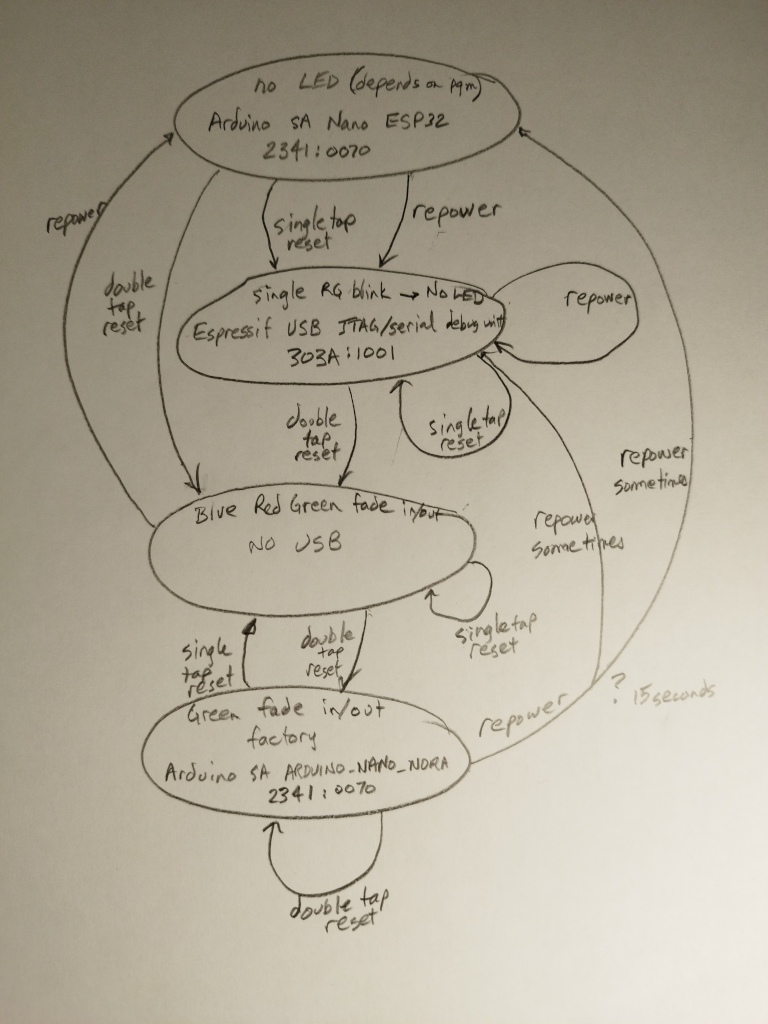 no LED (depends on pgm)
Arduino SA Nano ESP32
2341:0070
repower
single tap
reset
repower
double
tap
reset
single RG blink → No LED
Espressif USB JTAG/serial debug unit
303A:1001
repower
double
tap
reset
single tap
reset
repower
sometimes
repower
sometimes
Blue Red Green fade in/out
NO USB
single tap
reset
single
tap
reset
double
tap
reset
Green fade in/out
factory
Arduino SA ARDUINO_NANO_NORA
2341:0070
repower
? 15 seconds
double tap
reset